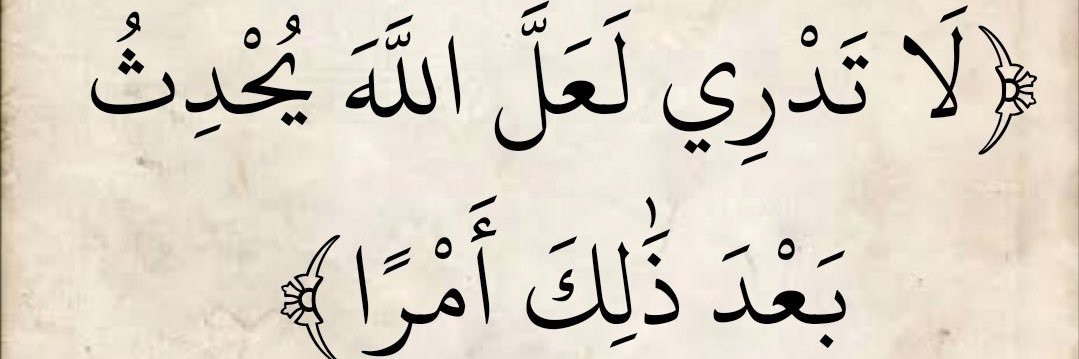 ﴿لَا تَدْرِي لَعَلَّ اللَّهَ يُحْدِثُ
بَعْدَ ذَٰلِكَ أَمْرًا﴾